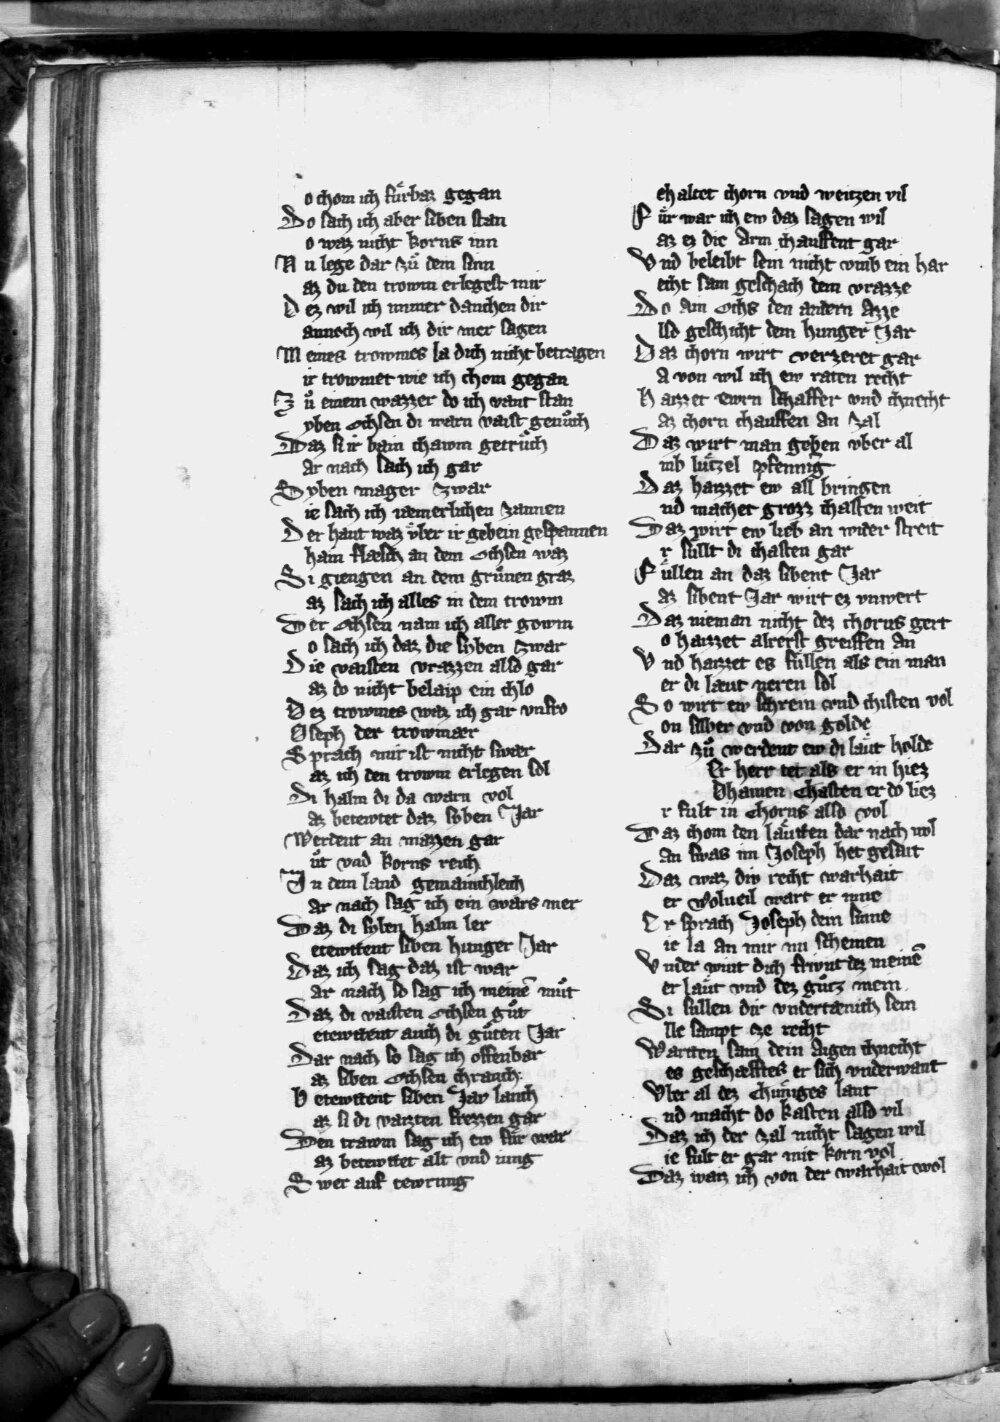 o chom ich fúrbaz gegan
Do sach ich aber siben stan
o waz nicht korns inn
Nu lege dar zů dem sinn
az du den trowm erlegest mir
Dez wil ich immer danchen dir
annoch wil ich dir mer sagen
Meines trowmes la dich nicht betragen
ir trowmet wie ich chom gegan
Zů einem wazzer do ich vant stan
yben Ochsen di warn vaist genůch
Daz si ir bain chawm getrůch
ar nach sach ich gar
Syben mager zwar
ie sach ich iæmerlichen zannen
Der haut waz v̊ber ir gebein gespannen
hain flæsch an dem Ochsen waz
Si giengen an dem grůnen graz
az sach ich alles in dem trowm
Der Ochsen nam ich aller gowm
o sach ich daz die syben zwar
Die vaisten vrazzen also gar
az do nicht belaip ein chlo
Dez trowmes waz ich gar vnfro
Oseph der trowmær
Sprach mir ist nicht swær
az ich den trowm erlegen sol
Di halm di da warn vol
az betewtet daz syben Jar
Werdent an mazzen gar
ůt vnd korns reich
In dem land gemainchleich
ar nach sag ich ein wars mer
Daz di syben halm ler
etewttent siben hunger Jar
Daz ich sag daz ist war
ar nach so sag ich meinē můt
Daz di vaisten Ochsen gůt
etewttent auch di gůten Jar
Dar nach so sag ich offenbar
az siben Ochsen chranch
Betewttent siben Jar lanch
az si di vaizten frezzen gar
Den trawm sag ich ew für war
az betewttet alt vnd iung
Swer auf tewrung
ehaltet chorn vnd weitzen vil
Für war ich ew daz sagen wil
az ez die Arm chauffent gar
Vnd beleibt sein nicht vmb ein har
echt sam geschach dem vrazze
Do ain Ochs den andern azze
lso geschicht dem hunger Jar
Daz chorn wirt verzeret gar
A von wil ich ew raten recht
Haizzet ewrn schaffer vnd chnecht
az chorn chauffen an zal
Daz wirt man geben vber al
mb lützel pfennig
Daz haizzet ew all bringen
nd machet grozz chasten weit
Daz wirt ew lieb an wider streit
r füllt di chasten gar
Füllen an daz sibent Jar
az sibent Jar wirt ez vnwert
Daz nieman nicht dez chorns gert
o haizzet alrerst greiffen an
Vnd haizzet es füllen als ein man
er di læut neren sol
So wirt ew schrein vnd chisten vol
on silber vnd von golde
Dar zů werdent ew di läut holde
Er herr tet als er in hiez
Dhainen Chasten er do liez
r fult in Chorns also vol
Daz chom den läutten dar nach wol
an swas im Joseph het gesait
Daz waz div recht warhait
er wolueil wart er inne
Er sprach Joseph dem sinne
ie la an mir nu scheinen
Vnder wint dich frivnt dez meinē
er läut vnd dez gůtz mein
Si süllen dir vndertænich sein
lle sampt ze recht
Wartten sam dein aigen chnecht
es geschæfftes er sich vnderwant
Vber al dez Chüniges lant
nd macht do kasten also vil
Daz ich der zal nicht sagen wil
ie fult er gar mit korn vol
Daz waiz ich von der warhait wol